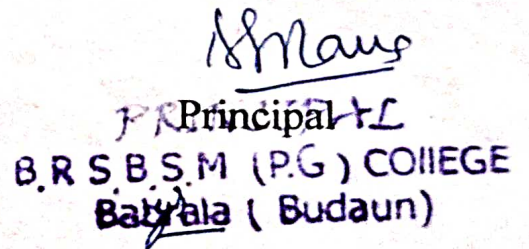 Principal
PRINCIPAL
B.R.S.B.S.M (P.G) COllEGE
Babrala ( Budaun)